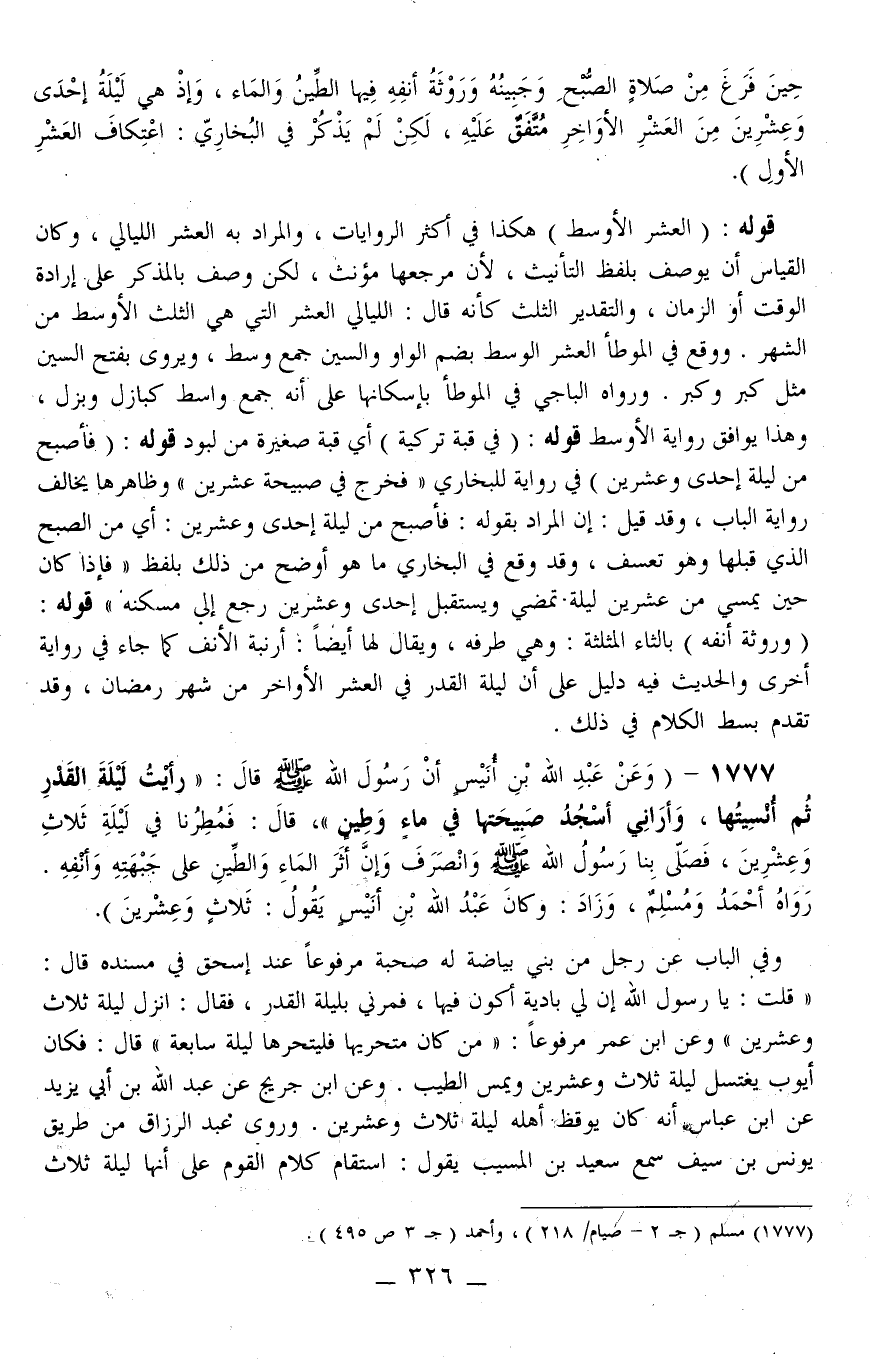 حِينَ فَرَغَ مِنْ صَلاةِ الصُّبْحِ وَجَبِينُهُ وَرَوْثَةُ أنفِهِ فِيها الطِّينُ وَالمَاء ، وَإذْ هي لَيْلَةُ إحْدَى
وَعِشْرِينَ مِنَ العَشْرِ الأوَاخِرِ مُتَّفَقٌ عَلَيْهِ ، لَكِنْ لَمْ يَذْكُرْ في البُخاريّ : اعْتِكافَ العَشْرِ
الأولِ ).
قوله : ( العشر الأوسط ) هكذا في أكثر الروايات ، والمراد به العشر الليالي ، وكان
القياس أن يوصف بلفظ التأنيث ، لأن مرجعها مؤنث ، لكن وصف بالمذكر على إرادة
الوقت أو الزمان ، والتقدير الثلث كأنه قال : الليالي العشر التي هي الثلث الأوسط من
الشهر . ووقع في الموطأ العشر الوسط بضم الواو والسين جمع وسط ، ويروى بفتح السين
مثل كبر وكبر . ورواه الباجي في الموطأ بإسكانها على أنه جمع واسط كبازل وبزل ،
وهذا يوافق رواية الأوسط قوله : ( في قبة تركية ) أي قبة صغيرة من لبود قوله : ( فأصبح
من ليلة إحدى وعشرين ) في رواية للبخاري « فخرج في صبيحة عشرين » وظاهرها يخالف
رواية الباب ، وقد قيل : إن المراد بقوله : فأصبح من ليلة إحدى وعشرين : أي من الصبح
الذي قبلها وهو تعسف ، وقد وقع في البخاري ما هو أوضح من ذلك بلفظ « فإذا كان
حين يمسي من عشرين ليلة تمضي ويستقبل إحدى وعشرين رجع إلى مسكنه » قوله :
( وروثة أنفه ) بالثاء المثلثة : وهي طرفه ، ويقال لها أيضاً : أرنبة الأنف كما جاء في رواية
أخرى والحديث فيه دليل على أن ليلة القدر في العشر الأواخر من شهر رمضان ، وقد
تقدم بسط الكلام في ذلك .
١٧٧٧ – ( وَعَنْ عَبْدِ الله بْنِ أُنَيْسٍ أنْ رَسُولَ الله ﷺ قالَ : « رأيْتُ لَيْلَةَ القَدْرِ
ثُم أُنْسِيتُها ، وَأرَانِي أسْجُدُ صَبِيحَتَها في ماءٍ وَطِينٍ »، قالَ : فَمُطِرْنا في لَيْلَةِ ثَلاثِ
وَعِشْرِينَ ، فَصَلّى بِنا رَسُولُ الله ﷺ وَانْصَرَفَ وَإنَّ أثَرَ المَاءِ وَالطِّينِ على جَبْهَتِهِ وَأنْفِهِ .
رَوَاهُ أحْمَدُ وَمُسْلِمٌ ، وَزَادَ : وكانَ عَبْدُ الله بْنِ أنَيْسٍ يَقُولُ : ثَلاثٍ وَعِشْرِينَ ).
وفي الباب عن رجل من بني بياضة له صحبة مرفوعاً عند إسحق في مسنده قال :
« قلت : يا رسول الله إن لي بادية أكون فيها ، فمرني بليلة القدر ، فقال : انزل ليلة ثلاث
وعشرين » وعن ابن عمر مرفوعاً : « من كان متحريها فليتحرها ليلة سابعة » قال : فكان
أيوب يغتسل ليلة ثلاث وعشرين ويمس الطيب . وعن ابن جريج عن عبد الله بن أبي يزيد
عن ابن عباس أنه كان يوقظ أهله ليلة ثلاث وعشرين . وروى عبد الرزاق من طريق
يونس بن سيف سمع سعيد بن المسيب يقول : استقام كلام القوم على أنها ليلة ثلاث
(١٧٧٧) مسلم ( جـ ٢ – صيام/ ٢١٨ ) ، وأحمد ( جـ ٣ ص ٤٩٥ ) .
ــ ٣٢٦ ــ